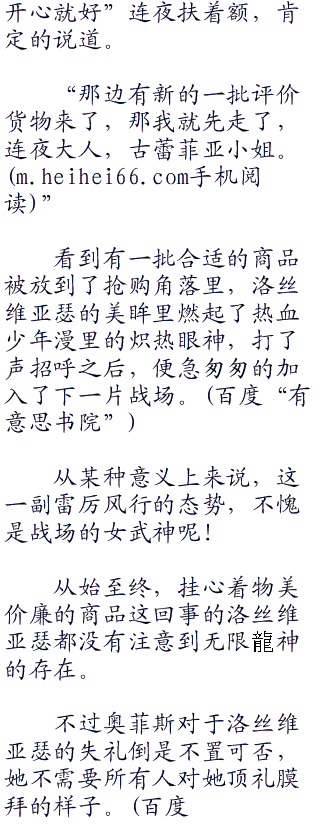 开心就好”连夜扶着额，肯
定的说道。
“那边有新的一批评价
货物来了，那我就先走了，
连夜大人，古蕾菲亚小姐。
(m.heihei66.com手机阅
读)”
看到有一批合适的商品
被放到了抢购角落里，洛丝
维亚瑟的美眸里燃起了热血
少年漫里的炽热眼神，打了
声招呼之后，便急匆匆的加
入了下一片战场。(百度“有
意思书院”)
从某种意义上来说，这
一副雷厉风行的态势，不愧
是战场的女武神呢！
从始至终，挂心着物美
价廉的商品这回事的洛丝维
亚瑟都没有注意到无限龍神
的存在。
不过奥菲斯对于洛丝维
亚瑟的失礼倒是不置可否，
她不需要所有人对她顶礼膜
拜的样子。(百度